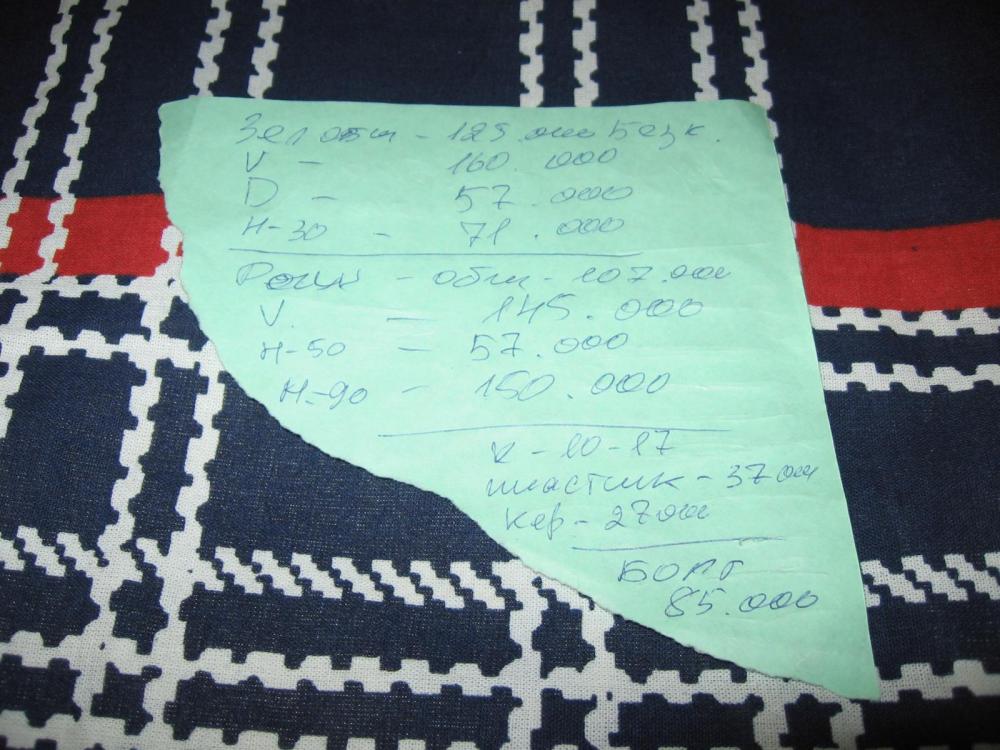 Зел общ - 125.000 Безк.
V - 160.000
D - 57.000
H-30 - 71.000
- общ - 107.000
V. - 145.000
H-50 - 57.000
H-90 - 150.000
К - 10 - 17
пластик - 37000
кер - 27000
БОЛТ
85.000